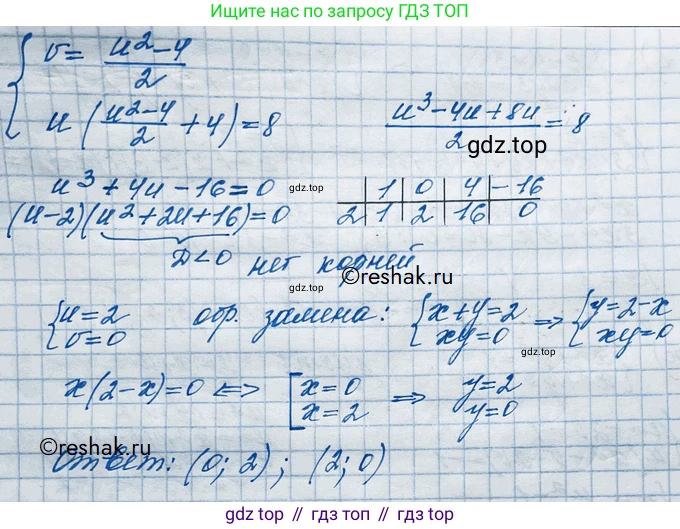 Ищите нас по запросу ГДЗ ТОП
{ v = (u²-4)/2
u((u²-4)/2 + 4) = 8
(u³-4u+8u)/2 = 8
gdz.top
u³+4u-16=0
gdz.top
| 1 | 0 | 4 | -16
(u-2)(u²+2u+16)=0
2 | 1 | 2 | 16 | 0
D<0 нет корней
©reshak.ru
gdz.top
{ u=2
v=0
обр. замена:
{ x+y=2
xy=0
⇒ { y=2-x
xy=0
gdz.top
x(2-x)=0 ⇔ [ x=0
x=2
⇒ y=2
y=0
©reshak.ru
Ответ: (0; 2); (2; 0)
gdz.top // гдз.топ // гдз.top